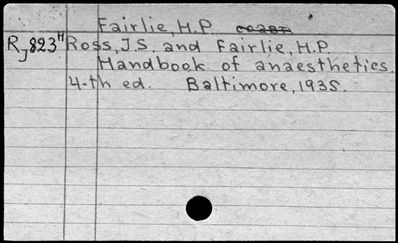 Fairlie, H.P.
RJ823H Ross, J.S. and Fairlie, H.P.
Handbook of anaesthetics.
4-th ed. Baltimore, 1935.